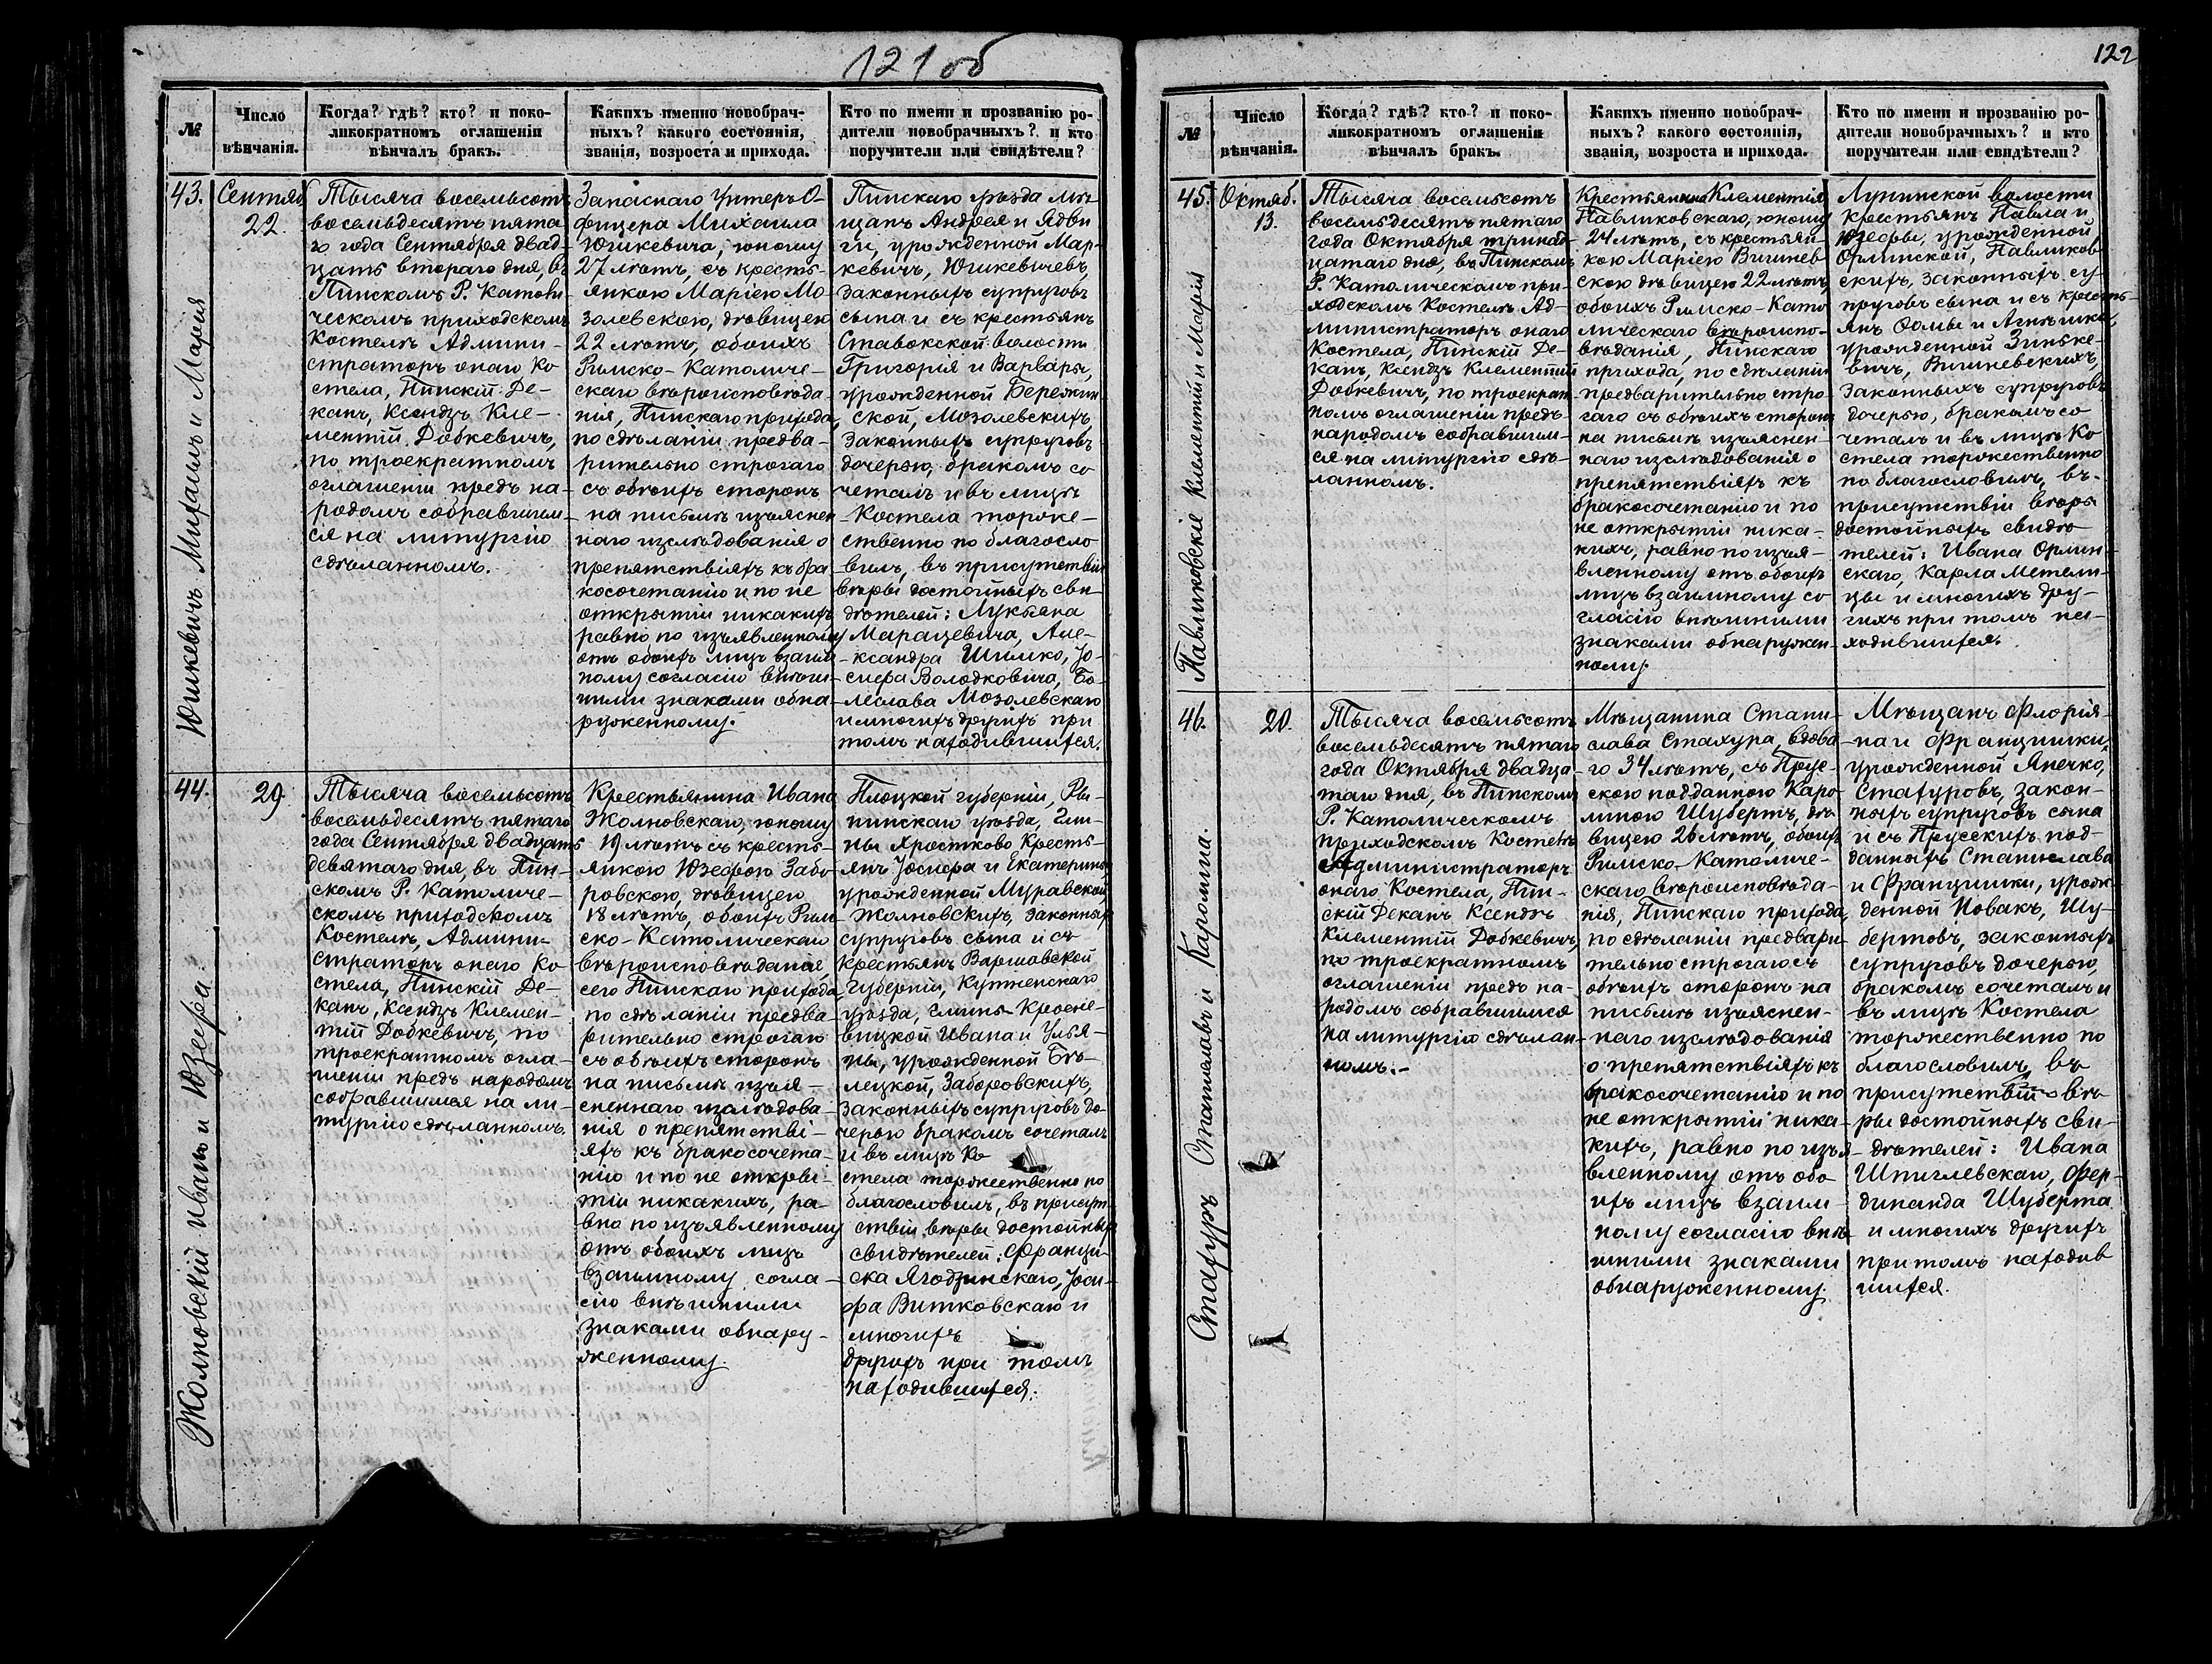 121 об
№
Число
вѣнчанія.
Когда? гдѣ? кто? и поко-
ликократномъ оглашеніи
вѣнчалъ бракъ.
Какихъ именно новобрач-
ныхъ? какого состоянія,
званія, возроста и прихода.
Кто по имени и прозванію ро-
дители новобрачныхъ? и кто
поручители или свидѣтели?
43.
Юшкевичъ Михаилъ и Марія
Сентяб
22.
Тысяча восемьсотъ
восемьдесятъ пята
го года Сентября двад-
цать втораго дня, въ
Пинскомъ Р. Католи-
ческомъ приходскомъ
Костелѣ Админи-
страторъ онаго Ко
стела, Пинскій Де-
канъ, Ксендзъ Кле-
ментій Добкевичъ,
по троекратномъ
оглашеніи предъ на-
родомъ собравшим-
ся на литургію
сдѣланномъ.
Запаснаго Унтеръ О-
фицера Михаила
Юшкевича, юношу
27 лѣтъ, съ кресть-
янкою Маріею Мо-
золевскою, дѣвицею
22 лѣтъ, обоихъ
Римско-Католиче-
скаго вѣроисповѣда-
нія, Пинскаго прихода,
по сдѣланіи предва-
рительно строгаго
съ обѣихъ сторонъ
на письмѣ изъяснен
наго изслѣдованія о
препятствіяхъ къ бра
косочетанію и по не
открытіи никакихъ
равно по изъявленному
отъ обоихъ лицъ взаим
ному согласію внѣш-
ними знаками обна
руженному.
Пинскаго уѣзда мѣ-
щанъ Андрея и Ядви
ги, урожденной Мар-
кевичъ, Юшкевичевъ,
законныхъ супруговъ
сына и съ крестьянъ
Ставокской волости
Григорія и Варвары,
урожденной Бережин
ской, Мозолевскихъ,
законныхъ супруговъ
дочерью, бракомъ со
четалъ и въ лицѣ
Костела торже-
ственно по благосло
вилъ, въ присутствіи
вѣры достойныхъ сви
дѣтелей: Лукьяна
Марацевича, Але-
ксандра Шимко, Іо-
сифа Володковича, Бо-
леслава Мозолевскаго
и многихъ другихъ при
томъ находившихся.
44.
Жолновскій Иванъ и Юзефа
29.
Тысяча восемьсотъ
восемьдесятъ пятаго
года Сентября двадцать
девятаго дня, въ Пин-
скомъ Р. Католиче-
скомъ приходскомъ
Костелѣ, Админи-
страторъ онаго Ко
стела, Пинскій Де-
канъ, Ксендзъ Клемен-
тій Добкевичъ, по
троекратномъ огла-
шеніи предъ народомъ
собравшимся на ли-
тургію сдѣланномъ.
Крестьянина Ивана
Жолновскаго, юношу
19 лѣтъ съ кресть-
янкою Юзефою Забо
ровскою, дѣвицею
18 лѣтъ, обоихъ Рим
ско-Католическаго
вѣроисповѣданія
сего Пинскаго прихода,
по сдѣланіи предва-
рительно строгаго
съ обѣихъ сторонъ
на письмѣ изъя-
сненнаго изслѣдова-
нія о препятстві-
яхъ къ бракосочета-
нію и по не откры-
тіи никакихъ, ра-
вно по изъявленному
отъ обоихъ лицъ
взаимному согла-
сію внѣшними
знаками обнару-
женному.
Плоцкой губерніи, Ры-
пинскаго уѣзда, Гми-
ны Яростково Кресть-
янъ Іосифа и Екатерины,
урожденной Муравской,
Жолновскихъ, законныхъ
супруговъ сына и съ
крестьянъ Варшавской
Губерніи, Кутненскаго
уѣзда, Гмины Кросне-
вицкой Ивана и Улья-
ны, урожденной Бѣ-
лецкой, Заборовскихъ,
законныхъ супруговъ до
черью бракомъ сочеталъ
и въ лицѣ Ко
стела торжественно по
благословилъ, въ присут
ствіи вѣры достойныхъ
свидѣтелей: Франци-
ска Ягодзинскаго, Іоси-
фа Витковскаго и
многихъ
другихъ при томъ
находившихся.
122
№
Число
вѣнчанія.
Когда? гдѣ? кто? и поко-
ликократномъ оглашеніи
вѣнчалъ бракъ.
Какихъ именно новобрач-
ныхъ? какого состоянія,
званія, возроста и прихода.
Кто по имени и прозванію ро-
дители новобрачныхъ? и кто
поручители или свидѣтели?
45.
Павликовскіе Клементій и Марія
Октяб.
13.
Тысяча восемьсотъ
восемьдесятъ пятаго
года Октября тринад-
цатаго дня, въ Пинскомъ
Р. Католическомъ при-
ходскомъ Костелѣ Ад-
министраторъ онаго
Костела, Пинскій Де-
канъ, Ксендзъ Клементій
Добкевичъ, по троекрат
номъ оглашеніи предъ
народомъ собравшим-
ся на литургію сдѣ-
ланномъ.
Крестьянина Клементія
Павликовскаго, юношу
24 лѣтъ, съ крестьян-
кою Маріею Вишнев
скою дѣвицею 22 лѣтъ,
обоихъ Римско-Като
лическаго вѣроиспо-
вѣданія, Пинскаго
прихода, по сдѣланіи
предварительно стро
гаго съ обѣихъ сторонъ
на письмѣ изъяснен-
наго изслѣдованія о
препятствіяхъ къ
бракосочетанію и по
не открытіи ника-
кихъ, равно по изъя-
вленному отъ обоихъ
лицъ взаимному со
гласію внѣшними
знаками обнаружен-
ному.
Лунинской волости
крестьянъ Павла и
Юзефы, урожденной
Орлинской, Павликов-
скихъ, законныхъ су-
пруговъ сына и съ кресть-
янъ Ѳомы и Агнѣшки,
урожденной Зинке-
вичъ, Вишневскихъ,
законныхъ супруговъ
дочерью, бракомъ со
четалъ и въ лицѣ Ко
стела торжественно
по благословилъ, въ
присутствіи вѣры
достойныхъ свидѣ
телей: Ивана Орлин-
скаго, Карла Метели-
цы и многихъ дру-
гихъ при томъ на-
ходившихся.
46.
Стахуръ Станиславъ и Каролина.
20.
Тысяча восемьсотъ
восемьдесятъ пятаго
года Октября двадца-
таго дня, въ Пинскомъ
Р. Католическомъ
приходскомъ Костелѣ
Администраторъ
онаго Костела, Пин-
скій Деканъ Ксендзъ
Клементій Добкевичъ,
по троекратномъ
оглашеніи предъ на-
родомъ собравшимся
на литургію сдѣлан-
номъ.-
Мѣщанина Стани-
слава Стахура, вдова
го 34 лѣтъ, съ Прус-
скою подданною Каро
линою Шубертъ, дѣ
вицею 26 лѣтъ, обоихъ
Римско-Католиче-
скаго вѣроисповѣда-
нія, Пинскаго прихода,
по сдѣланіи предвари
тельно строгаго съ
обѣихъ сторонъ на
письмѣ изъяснен-
наго изслѣдованія
о препятствіяхъ къ
бракосочетанію и по
не открытіи ника-
кихъ, равно по изъя-
вленному отъ обо
ихъ лицъ взаим
ному согласію внѣ
шними знаками
обнаруженному.
Мѣщанъ Флорія-
на и Францишки,
урожденной Янечко,
Стахуровъ, закон-
ныхъ супруговъ сына
и съ Прусскихъ под-
данныхъ Станислава
и Францишки, урож-
денной Новакъ, Шу-
бертовъ, законныхъ
супруговъ дочерью,
бракомъ сочеталъ и
въ лицѣ Костела
торжественно по
благословилъ, въ
присутствіи вѣ-
ры достойныхъ сви-
дѣтелей: Ивана
Шпиглевскаго, Фер-
динанда Шуберта
и многихъ другихъ
при томъ находив
шихся.